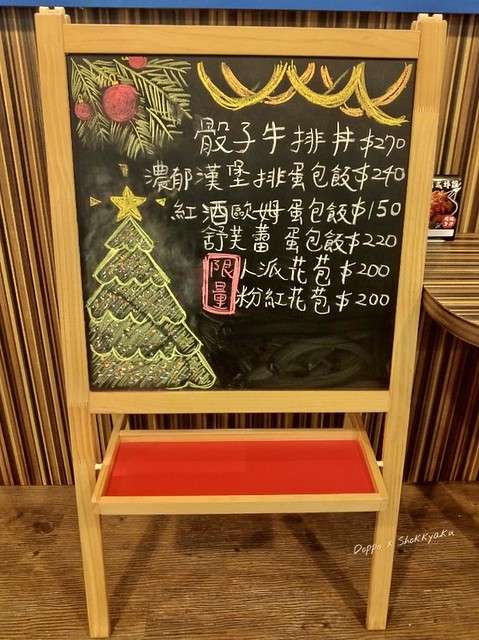 骰子牛排丼$270
濃郁漢堡排蛋包飯$240
紅酒歐姆蛋包飯$150
舒芙蕾蛋包飯$220
限量
人派花苞$200
粉紅花苞$200
Doppo x Shokkyaku